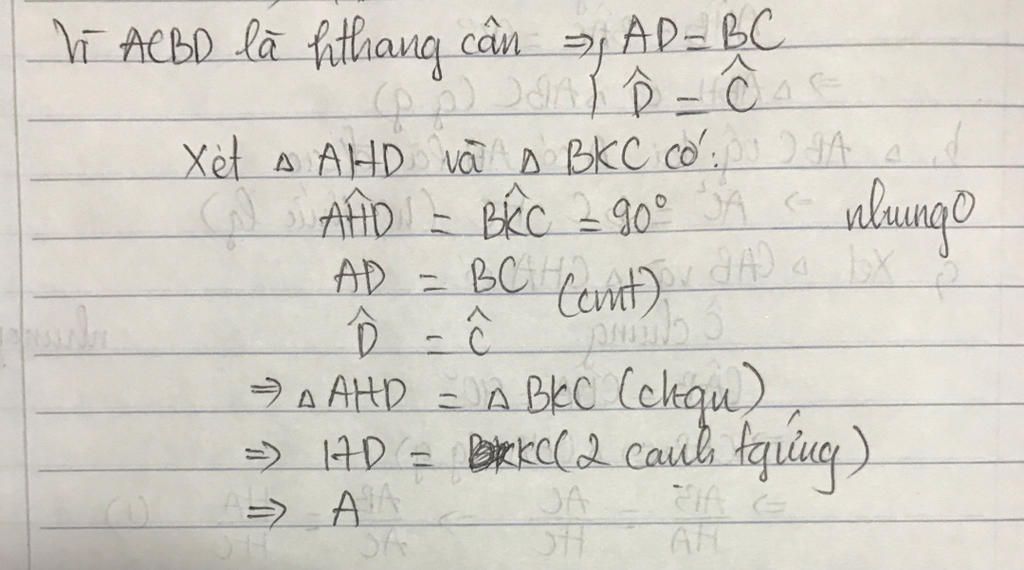 Vì ACBD là hthang cân ⇒ { AD = BC
D̂ = Ĉ
Xét △ AHD và △ BKC có:
AĤD = BK̂C = 90° nhung0
AD = BC (cmt)
D̂ = Ĉ
⇒ △ AHD = △ BKC (ch-gn)
⇒ HD = KC (2 cạnh tg ứng)
⇒ A